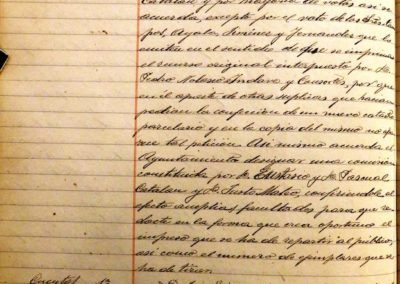 Catalan y por mayoria de votos así se
acuerda, excepto por el voto de los Sres.
Ayala, Jimenez y Fernandez que lo
emiten en el sentido de que se imprima
el recurso original interpuesto por D.
Pedro Nolasco y Consortes, por que
en él aparte de otras suplicas que hacian
pedian la confeccion de un nuevo catastro
parcelario y en la copia del mismo no apa-
rece tal peticion. Asi mismo acuerda el
Ayuntamiento designar una comision
constituida por D. Eustasio y D. Pascual
Catalan y D. Justo Mateo, confiriendole al
efecto amplias facultades para que re-
dacte en la forma que crea oportuno el
impreso que se ha de repartir al público,
asi como el numero de ejemplares que se
ha de tirar.
Cuentas